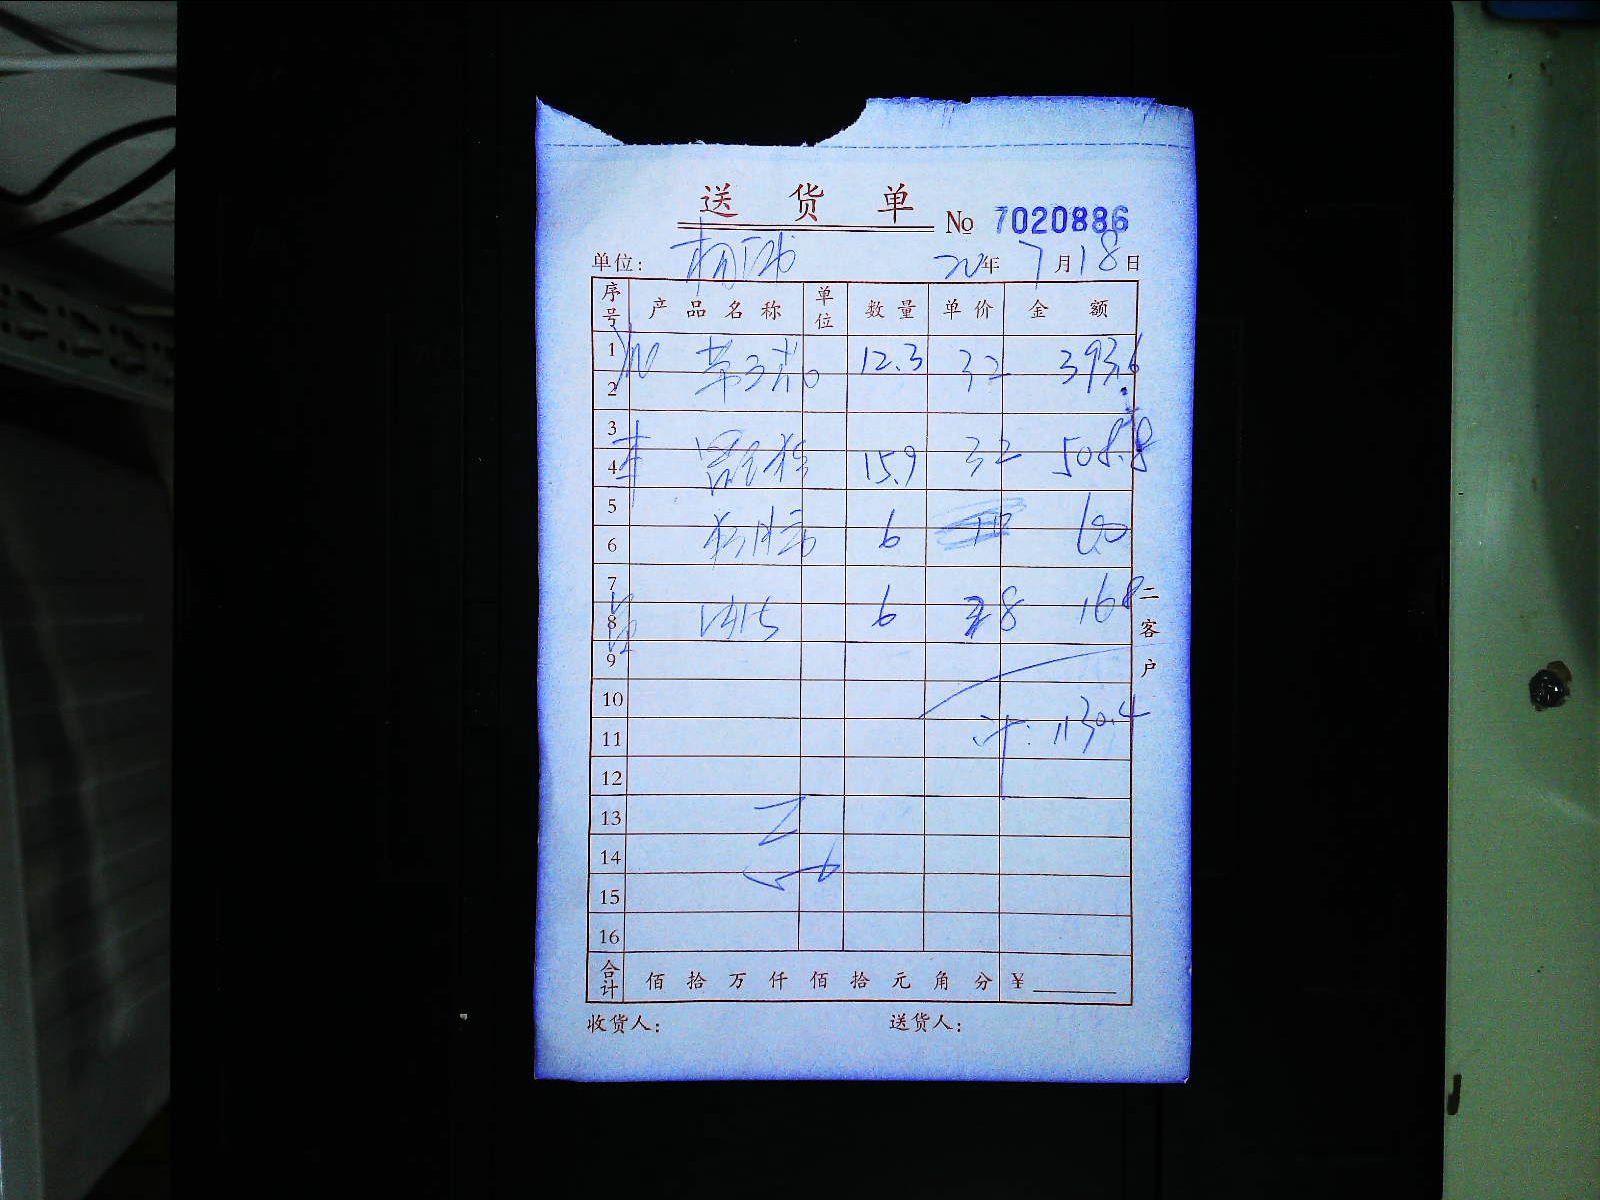 送 货 单
No 7020886
单位: 20年 7月18日
序号 产品名称 单位 数量 单价 金额
1 12.3 32 393.6
2
3
4 15.9 32 508.8
5
6 6 60
7
8 6 28 168
9
10
11 计: 1130.4
12
13
14
15
16
合计 佰 拾 万 仟 佰 拾 元 角 分 ¥
收货人: 送货人:
二客户